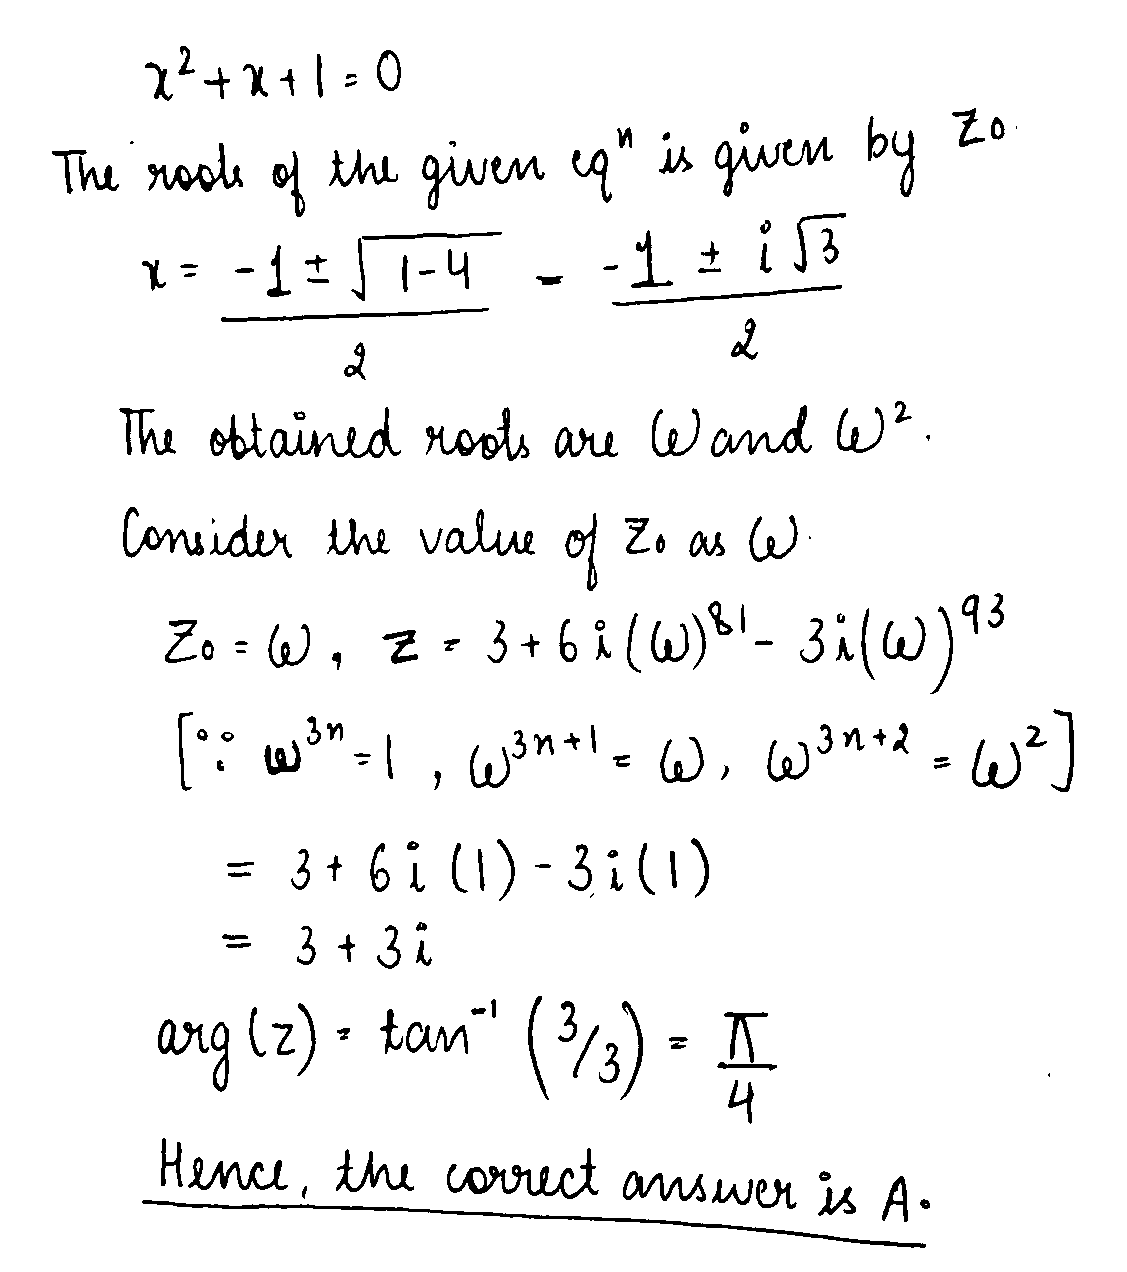 x² + x + 1 = 0
The roots of the given eqⁿ is given by Z₀.
x = (-1 ± √(1-4))/2 = (-1 ± i√3)/2
The obtained roots are ω and ω².
Consider the value of Z₀ as ω.
Z₀ = ω, z = 3 + 6i(ω)⁸¹ - 3i(ω)⁹³
[∵ ω³ⁿ = 1, ω³ⁿ⁺¹ = ω, ω³ⁿ⁺² = ω²]
= 3 + 6i(1) - 3i(1)
= 3 + 3i
arg(z) = tan⁻¹(3/3) = π/4
Hence, the correct answer is A.